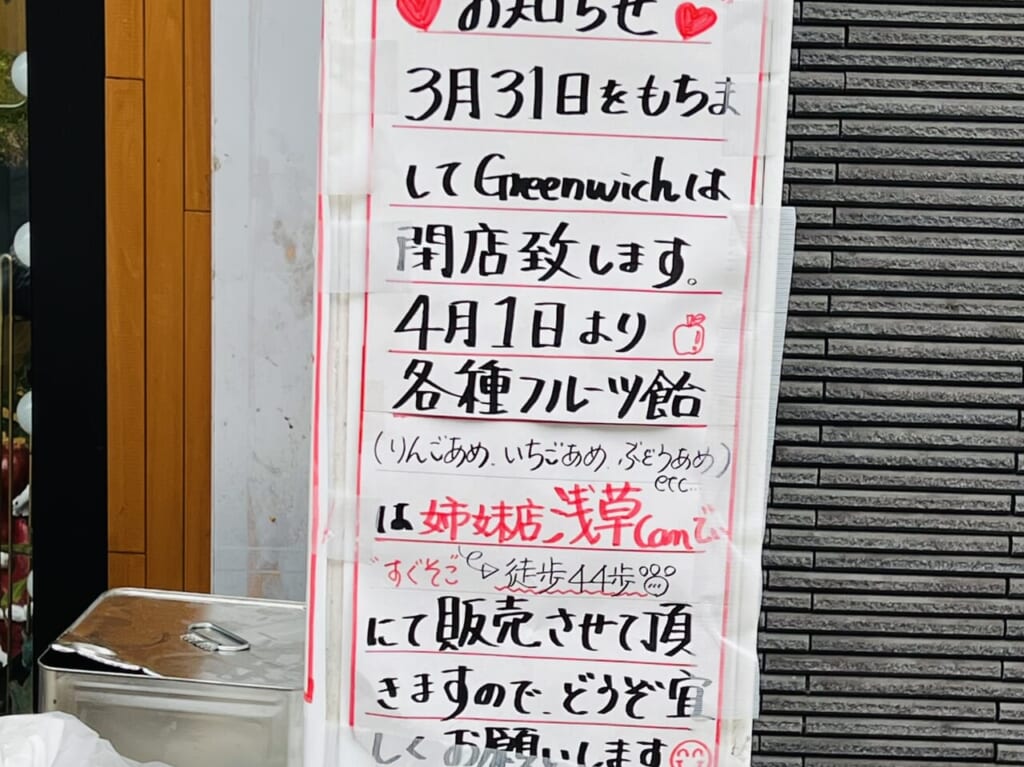 お知らせ
3月31日をもちま
してGreenwichは
閉店致します。
4月1日より
各種フルーツ飴
(りんごあめ、いちごあめ、ぶどうあめ)
etc...
は姉妹店、浅草Camで
すぐそこ 徒歩44歩
にて販売させて頂
きますので、どうぞ宜
しくお願いします